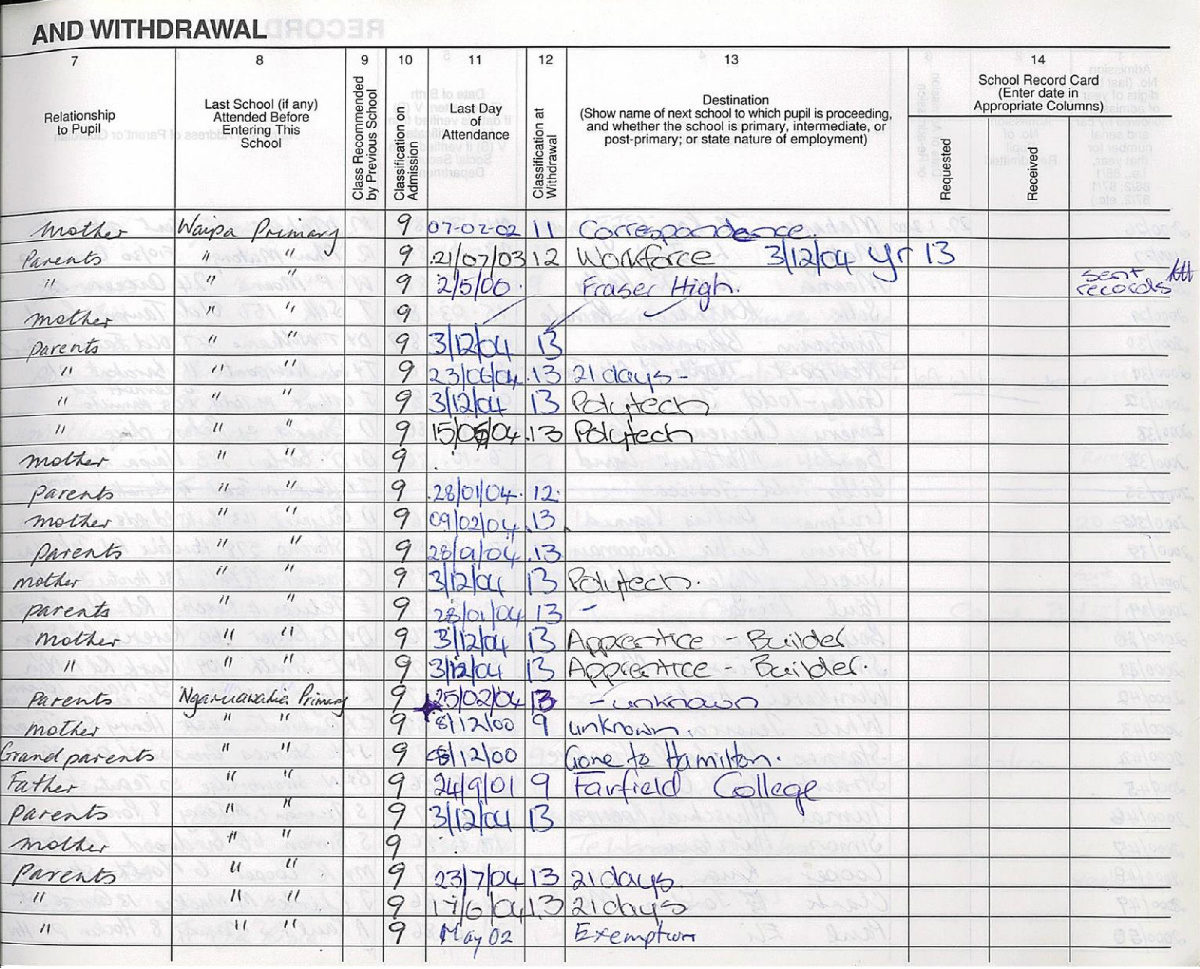 AND WITHDRAWAL
7 8 9 10 11 12 13 14
Relationship to Pupil
Last School (if any) Attended Before Entering This School
Class Recommended by Previous School
Classification on Admission
Last Day of Attendance
Classification at Withdrawal
Destination
(Show name of next school to which pupil is proceeding, and whether the school is primary, intermediate, or post-primary; or state nature of employment)
School Record Card
(Enter date in Appropriate Columns)
Requested
Received
Mother Waipa Primary 9 07-02-02 11 Correspondence.
Parents " " 9 21/07/03 12 Workforce 3/12/04 yr 13
" " " 9 2/5/00. Fraser High. sent records
Mother " " 9
Parents " " 9 3/12/04 13
" " " 9 23/06/04 13 21 days -
" " " 9 3/12/04 13 Polytech
" " " 9 15/06/04 13 Polytech
Mother " " 9
Parents " " 9 28/01/04 12
Mother " " 9 09/02/04 13
Parents " " 9 28/9/04 13
Mother " " 9 3/12/04 13 Polytech.
Parents " " 9 28/01/04 13 -
Mother " " 9 3/12/04 13 Apprentice - Builder
" " " 9 3/12/04 13 Apprentice - Builder.
Parents Ngaruawahia Primary 9 25/02/04 13 - unknown
Mother " " 9 8/12/00 9 unknown.
Grandparents " " 9 /12/00 Gone to Hamilton.
Father " " 9 24/9/01 9 Fairfield College
Parents " " 9 3/12/04 13
Mother " " 9
Parents " " 9 23/7/04 13 21 days.
" " " 9 17/6/04 13 21 days
" " " 9 May 02 Exemption